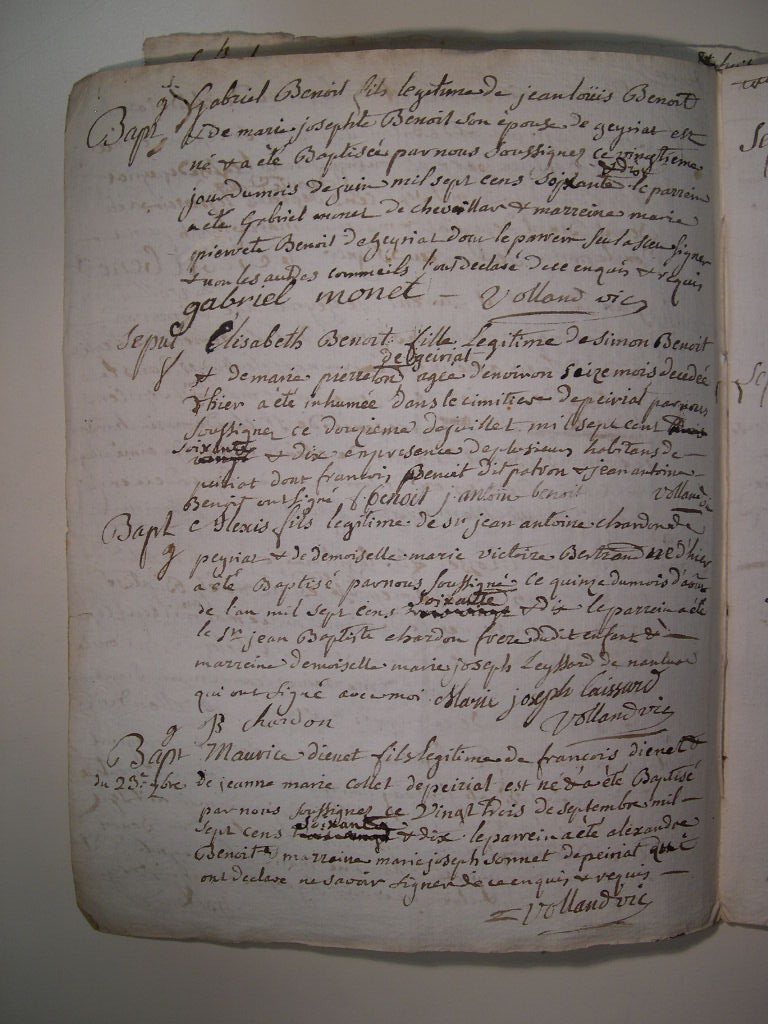 g
Bapt
Gabriel Benoit fils legitime de jean loüis Benoit
& de marie josephte Benoit son épouse de geyriat est
né & a été Baptiseé par nous soussignez ce vingtieme
jour du mois de juin mil sept cens soixante & dix le parrein
a été Gabriel monet de chevillar & marreine marie
pierrete Benoit de geyriat dont le parrein seul a sceu signer
& non les autres comme ils l'ont declaré de ce enquis & requis
gabriel monet – Volland vic
Sepul
Elisabeth Benoit fille legitime de Simon Benoit
de geiriat
& de marie pierreton ageé d'environ seize mois decedeé
d'hier a été inhumée dans le cimitiere de peiriat par nous
soussignez ce douzieme de juillet mil sept cent
soixante & dix en presence de plusieurs habitans de
peiriat dont francois Benoit dit patron & jean antoine
Benoit ont signé f benoit j antoine benoit Volland vic
Bapt
g
Alexis fils legitime de sr jean antoine chardon de
peyriat & de demoiselle marie victoire Bertrand né d'hier
a été Baptisé par nous soussigné ce quinze du mois d'aout
de l'an mil sept cens soixante & dix le parrein a été
le Sr jean Baptiste chardon frere dudit enfant &
marreine demoiselle marie joseph Leyssard de nantua
qui ont signé avec moi Marie joseph Laissard
JB chardon Volland vic
g
Bapt
du 23e 7bre
Maurice dienet fils legitime de francois dienet &
de jeanne marie collet de peirial est né & a été Baptisé
par nous soussignez ce vingt trois de septembre mil
sept cens soixante & dix le parrein a été alexandre
Benoit & marraine marie joseph sonnet de peiriat qui
ont declaré ne savoir signer de ce enquis & requis
Volland vic